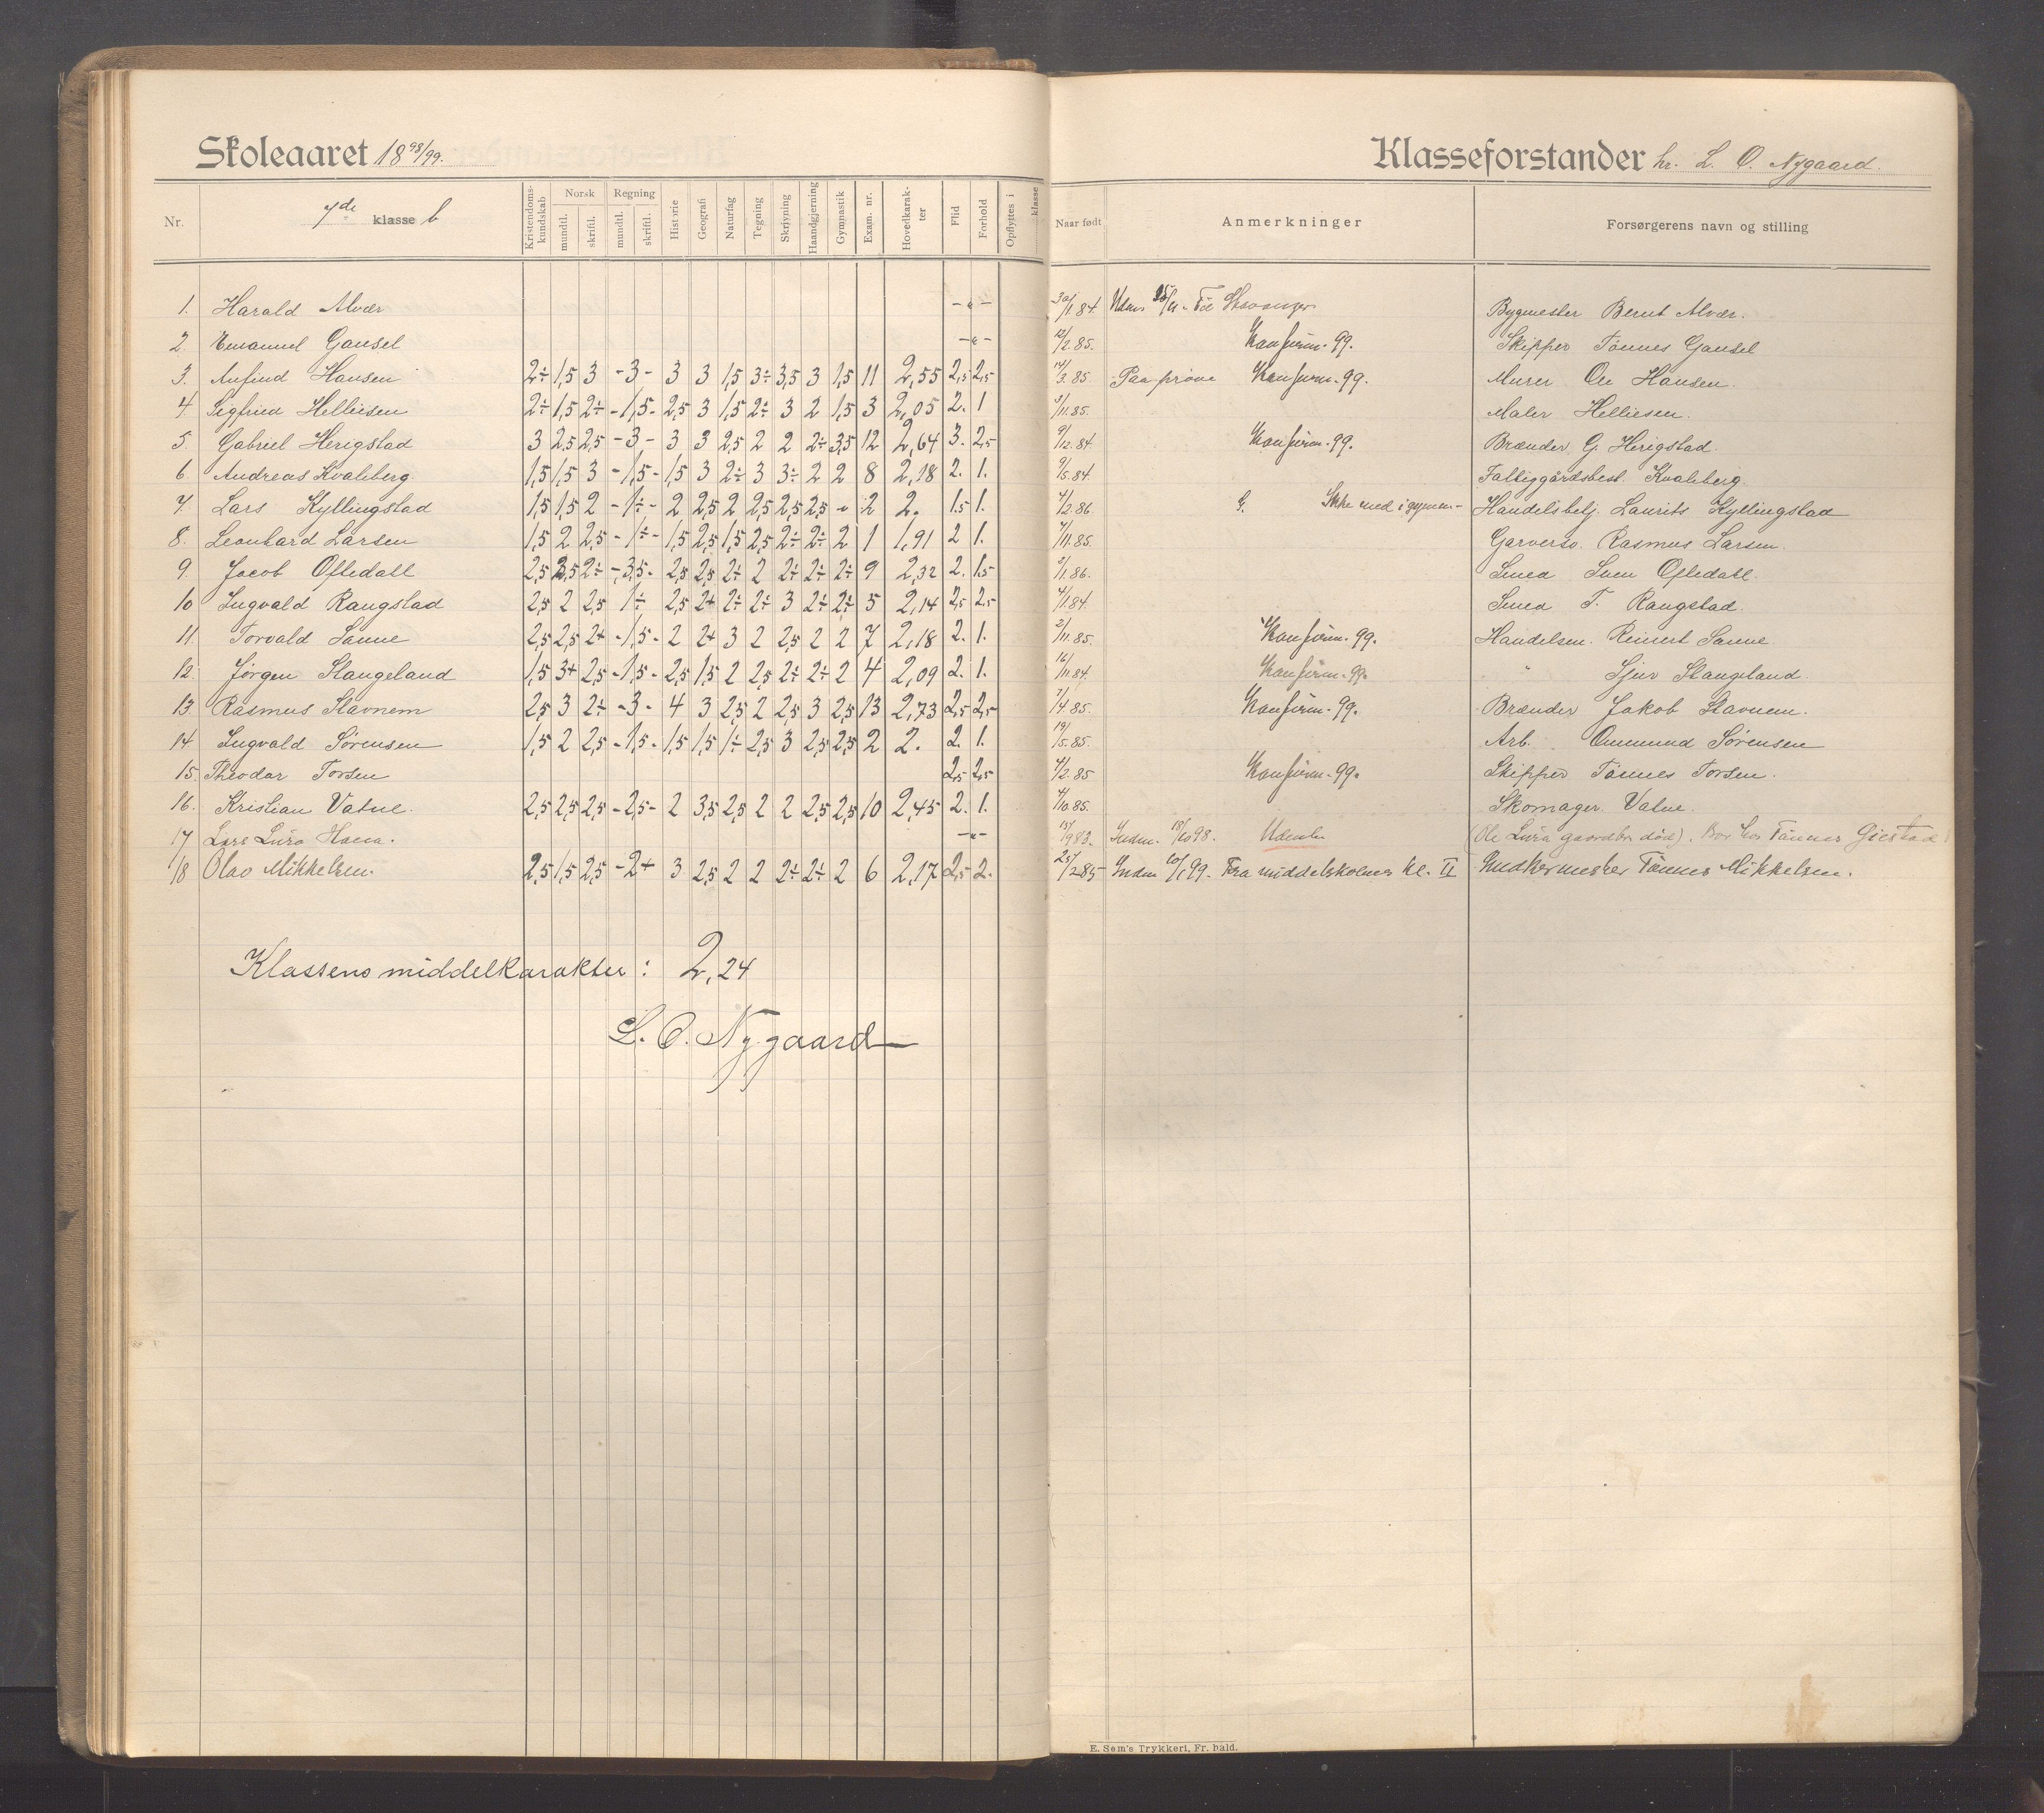 Skoleaaret 1898/99.
Klasseforstander hr. L. O. Nygaard.
Nr. 7de klasse b Kristendomskundskab Norsk mundtl. skriftl. Regning mundtl. skriftl. Historie Geografi Naturfag Tegning Skrivning Haandgjerning Gymnastik Exam. nr. Hovedkarakter Flid Forhold Opflyttes i klasse Naar født Anmerkninger Forsørgerens navn og stilling
1. Harald Alvær -"- 30/1 84. Udm. 25/11. Til Stavanger Bygmester Bernt Alvær.
2. Emanuel Gausel -"- 12/2. 85. Konfirm. 99. Skipper Tønnes Gausel
3. Anfind Hansen 2÷ 1,5 3 -3- 3 3 1,5 3÷ 3,5 3 1,5 11 2,55 2,5 2,5 14/3. 85. Paa prøve Konfirm. 99. Murer Ole Hansen.
4. Sigfried Helliesen 2÷ 1,5 2÷ -1,5- 2,5 3 1,5 2÷ 3 2 1,5 3 2,05 2. 1 3/11. 85. Maler Helliesen.
5. Gabriel Herigstad 3 2,5 2,5 -3- 3 3 2,5 2 2 2÷ 3,5 12 2,64 3. 2,5 9/12. 84. Konfirm. 99. Brænder G. Herigstad.
6. Andreas Kvaleberg 1,5 1,5 3 -1,5- 1,5 3 2÷ 3 3÷ 2 2 8 2,18 2. 1. 9/5. 84. Fattiggårdsbest. Kvaleberg.
7. Lars Kyllingstad 1,5 1,5 2 -1÷- 2 2,5 2 2,5 2,5 2,5 -"- 2 2. 1.5 1. 4/2. 86. G. Ikke med i gymn- Handelsbetj. Laurits Kyllingstad
8. Leonhard Larsen 1,5 2 2,5 -1÷- 1,5 2,5 1,5 2,5 2÷ 2÷ 2 1 1,91 2 1. 7/11. 85. Garversv. Rasmus Larsen.
9. Jacob Oftedahl 2,5 3,5 2÷ -3,5- 2,5 2,5 2÷ 2 2÷ 2÷ 2÷ 9 2,32 2. 1.5 3/1. 86. Smed Sven Oftedahl.
10 Ingvald Rangstad 2,5 2 2,5 1÷ 2,5 2+ 2÷ 2÷ 3 2÷ 2÷ 5 2,14 2,5 2.5 4/1. 84. Smed T. Rangstad.
11. Torvald Sanne 2,5 2,5 2+ -1,5- 2 2+ 3 2 2,5 2 2 7 2,18 2. 1. 2/11. 85. Konfirm. 99. Handelsm. Reinert Sanne
12. Jørgen Stangeland 1,5 3+ 2,5 -1,5- 2,5 1,5 2 2,5 2÷ 2÷ 2 4 2,09 2. 1. 16/11. 84. Konfirm. 99. " Sjur Stangeland.
13. Rasmus Stavnem 2,5 3 2÷ -3- 4 3 2,5 2 2,5 3 2,5 13 2,73 2,5 2,5 7/4. 85. Konfirm. 99. Brænder Jakob Stavnem.
14. Ingvald Sørensen 1,5 2 2,5 -1,5- 1,5 1,5 1÷ 2,5 3 2,5 2,5 2 2. 2. 1. 19/5. 85. Arb. Ommund Sørensen
15. Theodor Torsen 2,5 2,5 4/2. 85 Konfirm. 99. Skipper Tønnes Torsen.
16. Kristian Vatne. 2,5 2,5 2,5 -2,5- 2 3,5 2,5 2 2 2,5 2,5 10 2,45 2. 1. 4/10. 85. Skomager Vatne.
17 Lars Lura Hana. -"- 15/9 83. Indm. 18/10 98. Udmeldt (Ole Lura gaardbr. død). Bor hos Tønnes Gjestad
18 Olav Mikkelsen. 2,5 1,5 2,5 -2+ 3 2,5 2 2 2÷ 2÷ 2 6 2,17 2,5 2. 25/2 85 Indm 10/1 99. Fra middelskolens kl. II Snedkermester Tønnes Mikkelsen.
Klassens middelkarakter: 2,24
L. O. Nygaard
E. Sem's Trykkeri, Fr.hald.